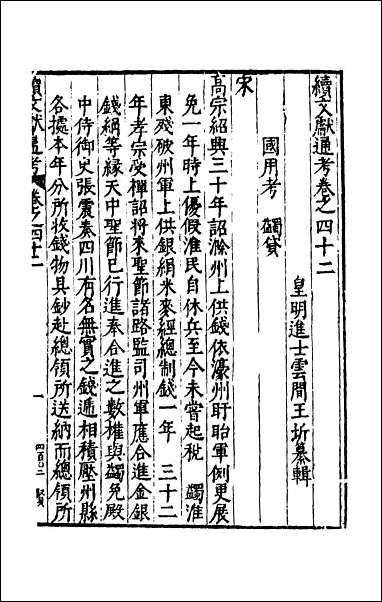 續文獻通考卷之四十二
皇明進士雲間王圻纂輯
國用考 蠲貸
宋
高宗紹興三十年詔滁州上供錢依濠州盱眙軍例更展
免一年時上優假淮民自休兵至今未嘗起秕 蠲淮
東殘破州軍上供銀絹米麥經總制錢一年 三十二
年孝宗受禪詔將來聖節諸路監司州軍應合進金銀
錢絹等緣天中聖節已行進奉合進之數權與蠲免殿
中侍御史張震奏四川有名無實之錢遞相積壓州縣
各據本年分所收錢物具鈔赴總領所送納而總領所
續文獻通考 卷之四十二
一
四百〇二 賢